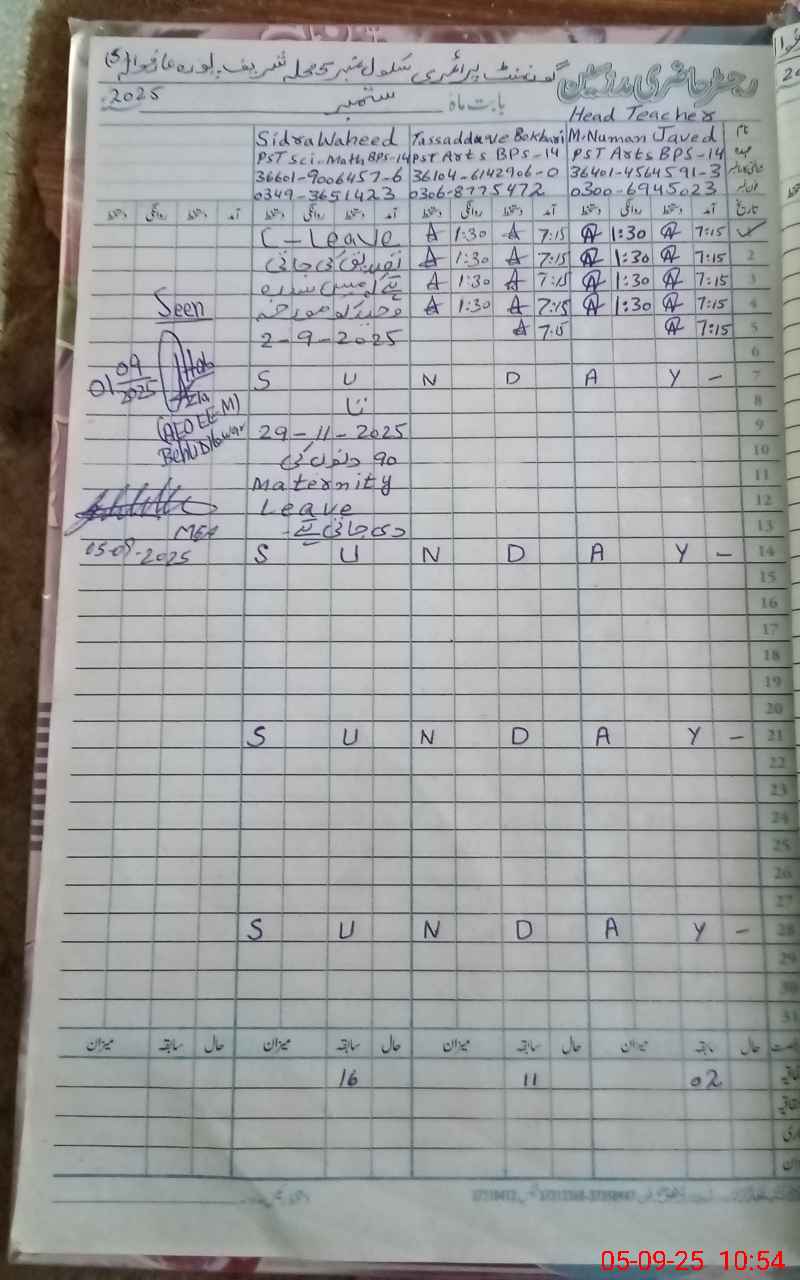 رجسٹر حاضری مدرسین گورنمنٹ پرائمری سکول نمبر 5 محلہ شریف پورہ
بابت ماہ ستمبر 2025
Head Teacher
نام M. Numan Javed Tassaddave Bokhari Sidra Waheed
عہدہ PST Arts BPS-14 PST Arts BPS-14 PST Sci-Math BPS-14
36401-4564591-3 36104-6142906-0 36601-9006457-6
0300-6945023 0306-8775472 0349-3651423
تاریخ آمد دستخط روانگی دستخط آمد دستخط روانگی دستخط آمد دستخط روانگی دستخط آمد دستخط روانگی دستخط
7:15 1:30 7:15 1:30 C-Leave
2 7:15 1:30 7:15 1:30 تصدیق کی جاتی
3 7:15 1:30 7:15 1:30 ہے کہ مس سدرہ
4 7:15 1:30 7:15 1:30 وحید کو مورخہ
Seen
5 7:15 7:15 2-9-2025
6
7 S U N D A Y -
01 09 2025
8 تا
(AEO EE-M)
9 29-11-2025
10 90 دنوں کی
11 Maternity
12 Leave
13 دی جاتی ہے۔
MEA
05-09-2025
14 S U N D A Y -
15
16
17
18
19
20
21 S U N D A Y -
22
23
24
25
26
27
28 S U N D A Y -
29
30
31
حال سابقہ میزان حال سابقہ میزان حال سابقہ میزان حال سابقہ میزان
02 11 16
05-09-25 10:54